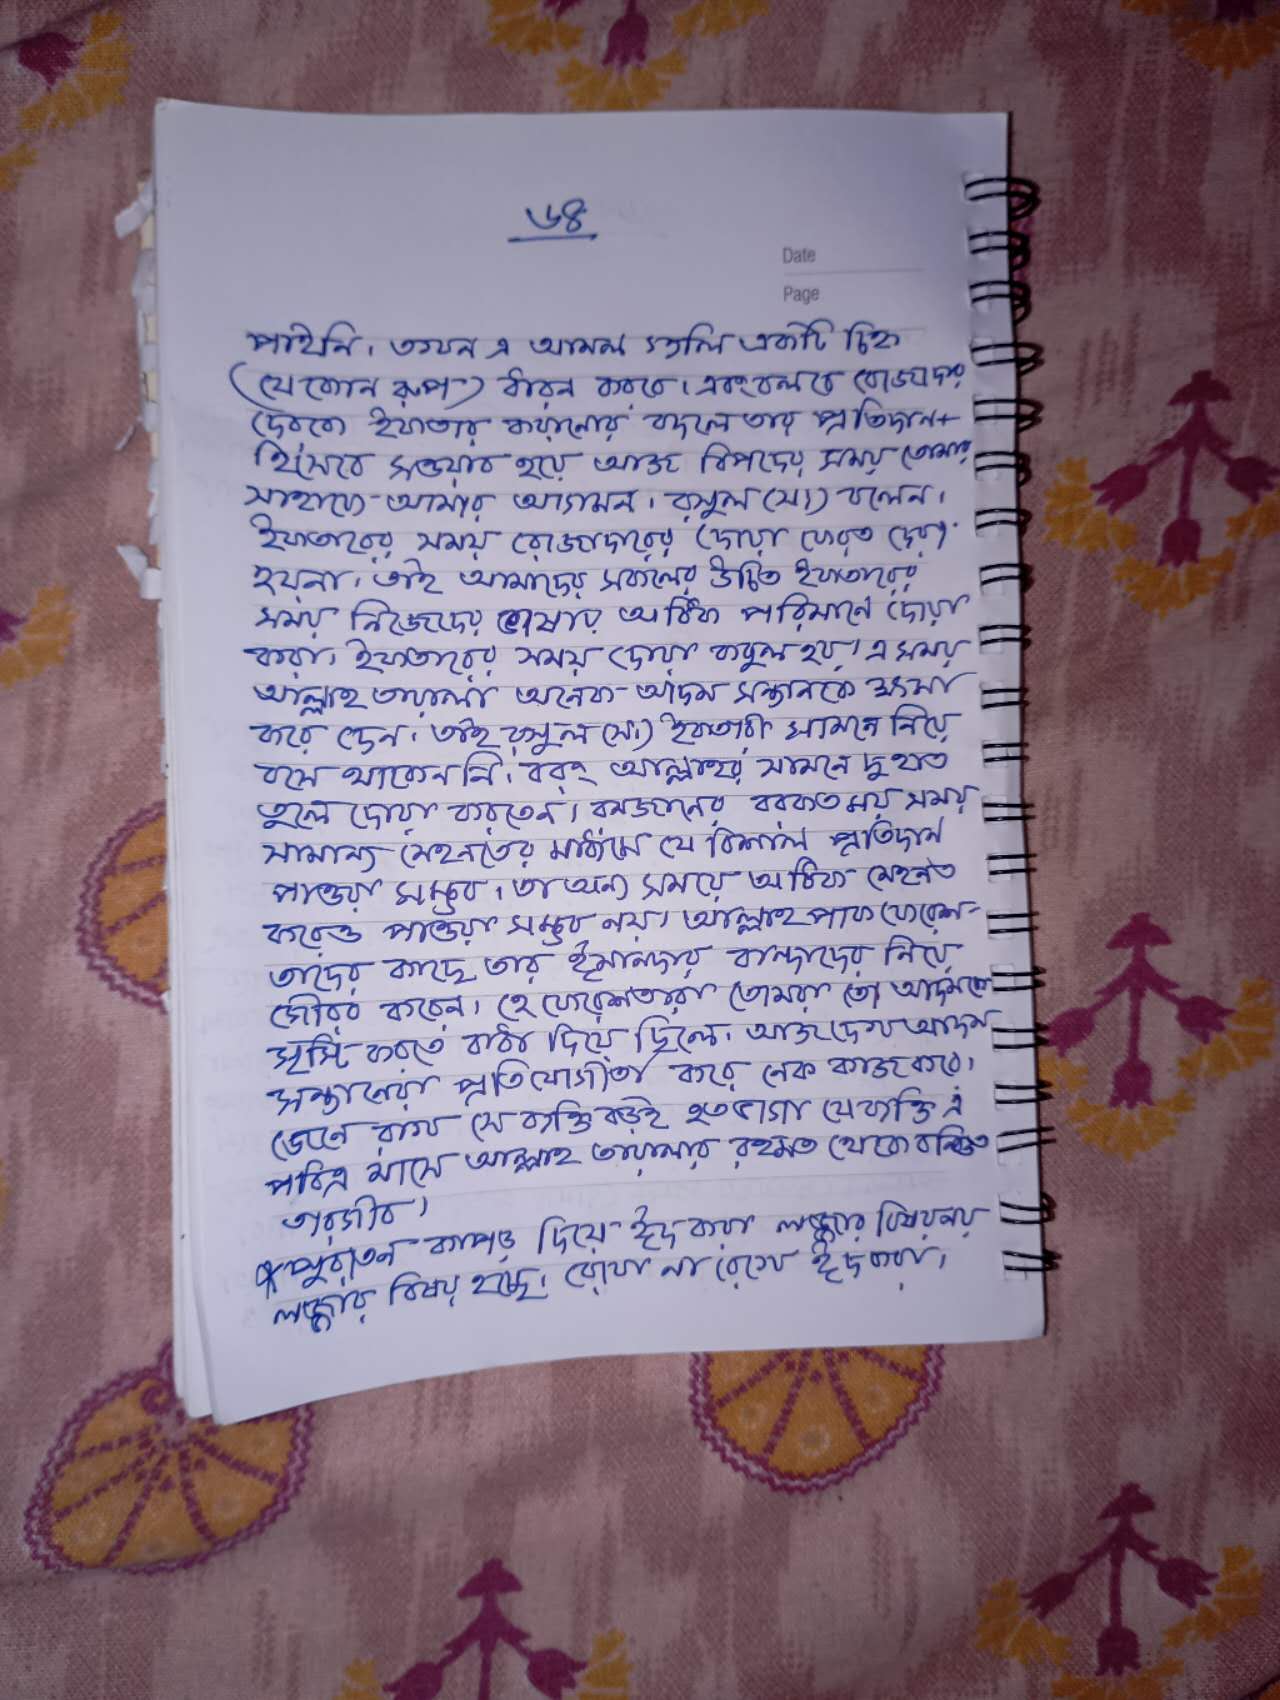 ৬৪
Date
Page
পাইনি। তখন এ আমল গুলি একটি চিহ্ন
(যে কোন রূপ) ধারন করবে। এবং বলবে রোজাদার
দেরকে ইফতার করানোর বদলে তার প্রতিদান
হিসেবে সওয়াব হয়ে আজ বিপদের সময় তোমার
সাহায্যে আমার আগমন। রসুল (সাঃ) বলেন।
ইফতারের সময় রোজাদারের দোয়া ফেরত দেয়া
হয়না। তাই আমাদের সকলের উচিত ইফতারের
সময় নিজেদের ভাষায় অধিক পরিমানে দোয়া
করা। ইফতারের সময় দোয়া কবুল হয়। এ সময়
আল্লাহ তায়ালা অনেক আদম সন্তানকে ক্ষমা
করে দেন। তাই রসুল (সাঃ) ইফতারী সামনে নিয়ে
বসে থাকেননি। বরং আল্লাহর সামনে দু হাত
তুলে দোয়া করতেন। রমজানের বরকতময় সময়
সামান্য মেহনতের মাধ্যমে যে বিশাল প্রতিদান
পাওয়া সম্ভব। তা অন্য সময়ে অধিক মেহনত
করেও পাওয়া সম্ভব নয়। আল্লাহ পাক ফেরেশ-
তাদের কাছে তার ঈমানদার বান্দাদের নিয়ে
গৌরব করেন। হে ফেরেশতারা তোমরা তো আদমকে
সৃষ্টি করতে বাধা দিয়ে ছিলে। আজ দেখ আদম
সন্তানেরা প্রতিযোগীতা করে নেক কাজ করে।
জেনে রাখ সে ব্যক্তি বড়ই হতভাগা যে ব্যক্তি এ
পবিত্র মাসে আল্লাহ তায়ালার রহমত থেকে বঞ্চিত
তারগীব।
* পুরাতন কাপড় দিয়ে ঈদ করা লজ্জার বিষয় নয়
লজ্জার বিষয় হচ্ছে। রোযা না রেখে ঈদ করা।